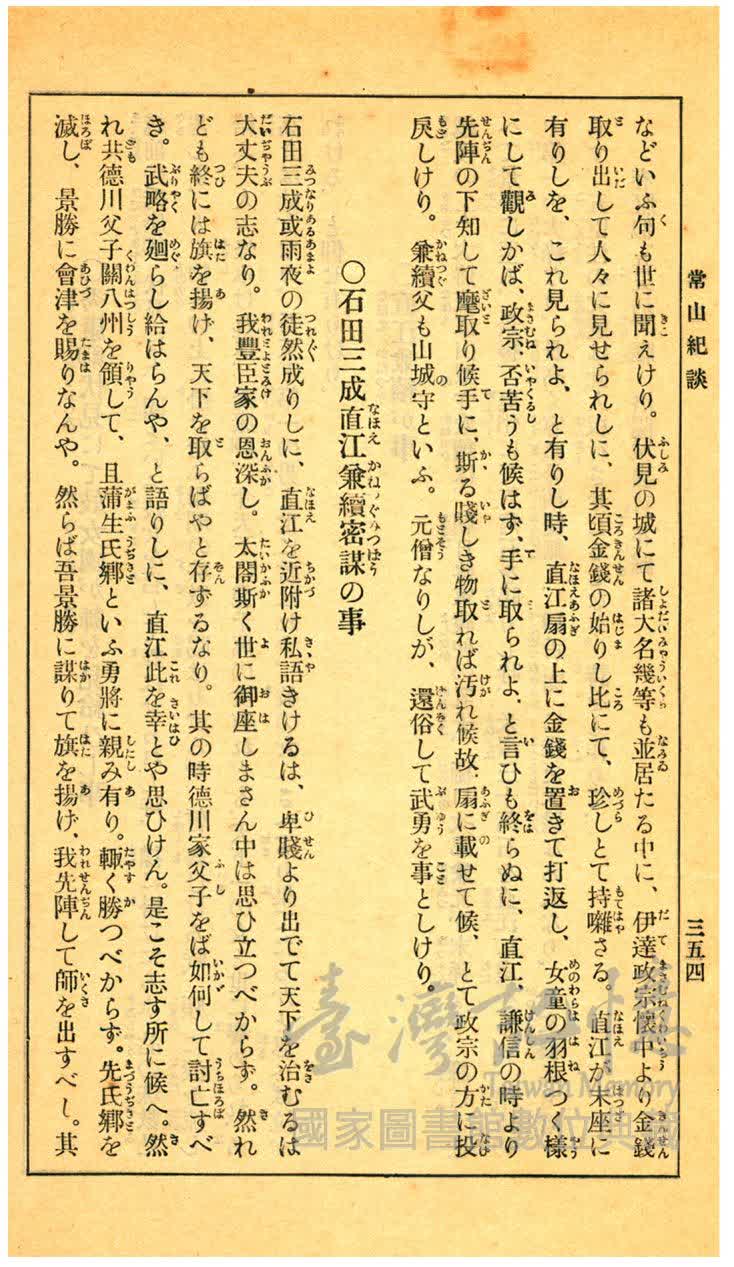 常山紀談
三五四
などいふ句も世に聞えけり。伏見の城にて諸大名幾等も並居たる中に、伊達政宗懷中より金錢
取り出して人々に見せられしに、其頃金錢の始りし比にて、珍しとて持囃さる。直江が末座に
有りしを、これ見られよ、と有りし時、直江扇の上に金錢を置きて打返し、女童の羽根つく樣
にして觀しかば、政宗、否苦うも候はず、手に取られよ、と言ひも終らぬに、直江、謙信の時より
先陣の下知して麾取り候手に、斯る賤しき物取れば汚れ候故、扇に載せて候、とて政宗の方に投
戾しけり。兼續父も山城守といふ。元僧なりしが、還俗して武勇を事としけり。
〇石田三成直江兼續密謀の事
石田三成或雨夜の徒然成りしに、直江を近附け私語きけるは、卑賤より出でて天下を治むるは
大丈夫の志なり。我豐臣家の恩深し。太閤斯く世に御座しまさん中は思ひ立つべからず。然れ
ども終には旗を揚げ、天下を取らばやと存ずるなり。其の時德川家父子をば如何して討亡すべ
き。武略を廻らし給はらんや、と語りしに、直江此を幸とや思ひけん。是こそ志す所に候へ。然
れ共德川父子關八州を領して、且蒲生氏鄕といふ勇將に親み有り。輙く勝つべからず。先氏鄕を
滅し、景勝に會津を賜りなんや。然らば吾景勝に謀りて旗を揚げ、我先陣して師を出すべし。其
臺灣記憶
Taiwan Memory
國家圖書館數位典藏